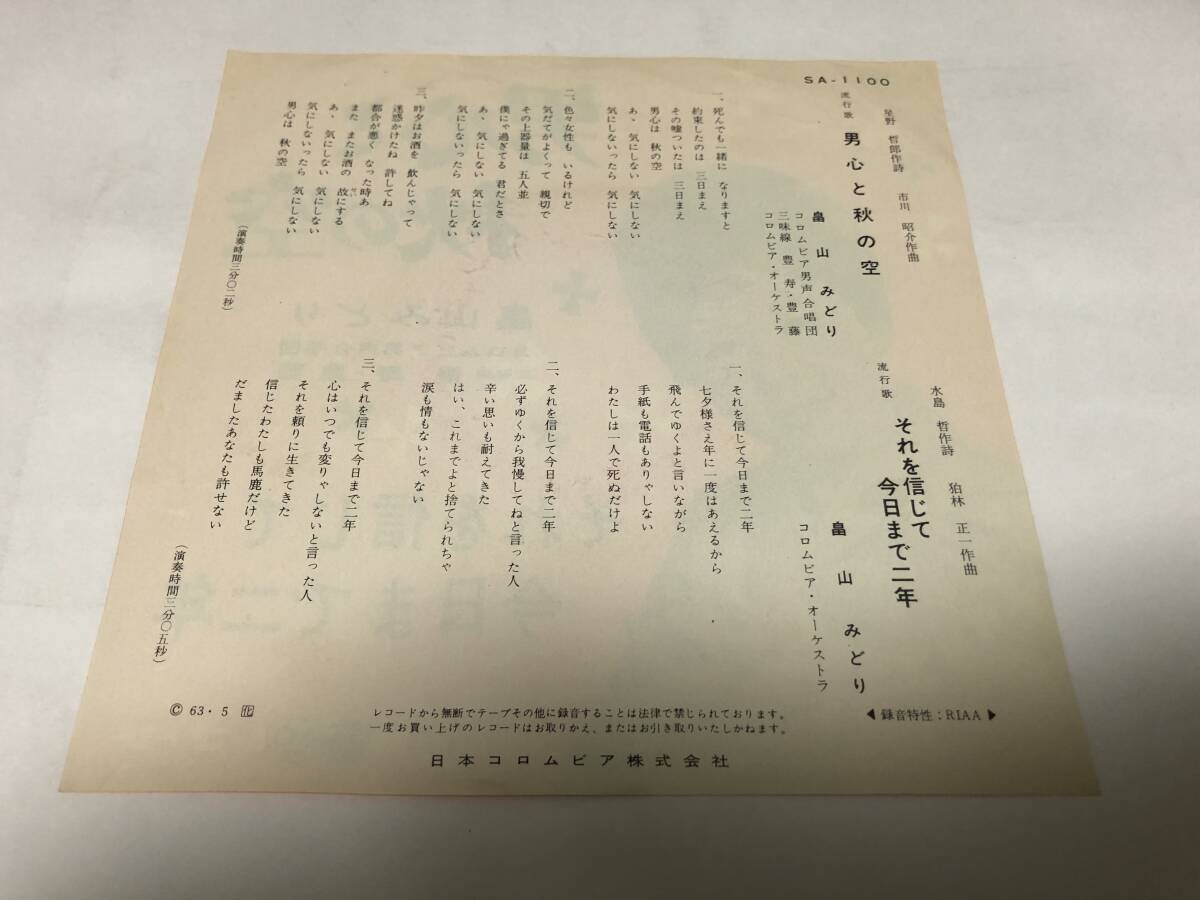 SA-1100
星野 哲郎作詩 市川 昭介作曲
流行歌
男心と秋の空
畠山みどり
コロムビア男声合唱団
三味線 豊寿・豊藤
コロムビア・オーケストラ
一、死んでも一緒に なりますと
約束したのは 三日まえ
その嘘ついたは 三日まえ
男心は 秋の空
あゝ 気にしない 気にしない
気にしないったら 気にしない
二、色々女性も いるけれど
気だてがよくって 親切で
その上器量は 五人並
僕にゃ過ぎてる 君だとさ
あゝ 気にしない 気にしない
気にしないったら 気にしない
三、昨夕はお酒を 飲んじゃって
迷惑かけたね 許してね
都合が悪く なった時あ
また またお酒の 故にする
あゝ 気にしない 気にしない
気にしないったら 気にしない
男心は 秋の空
(演奏時間三分〇二秒)
水島 哲作詩 狛林 正一作曲
流行歌
それを信じて
今日まで二年
畠山みどり
コロムビア・オーケストラ
一、それを信じて今日まで二年
七夕様さえ年に一度はあえるから
飛んでゆくよと言いながら
手紙も電話もありゃしない
わたしは一人で死ぬだけよ
二、それを信じて今日まで二年
必ずゆくから我慢してねと言った人
辛い思いも耐えてきた
はい、これまでよと捨てられちゃ
涙も情もないじゃない
三、それを信じて今日まで二年
心はいつでも変りゃしないと言った人
それを頼りに生きてきた
信じたわたしも馬鹿だけど
だましたあなたも許せない
(演奏時間三分〇五秒)
© 63・5
レコードから無断でテープその他に録音することは法律で禁じられております。
一度お買い上げのレコードはお取りかえ、またはお引き取りいたしかねます。
◀ 録音特性:RIAA ▶
日本コロムビア株式会社